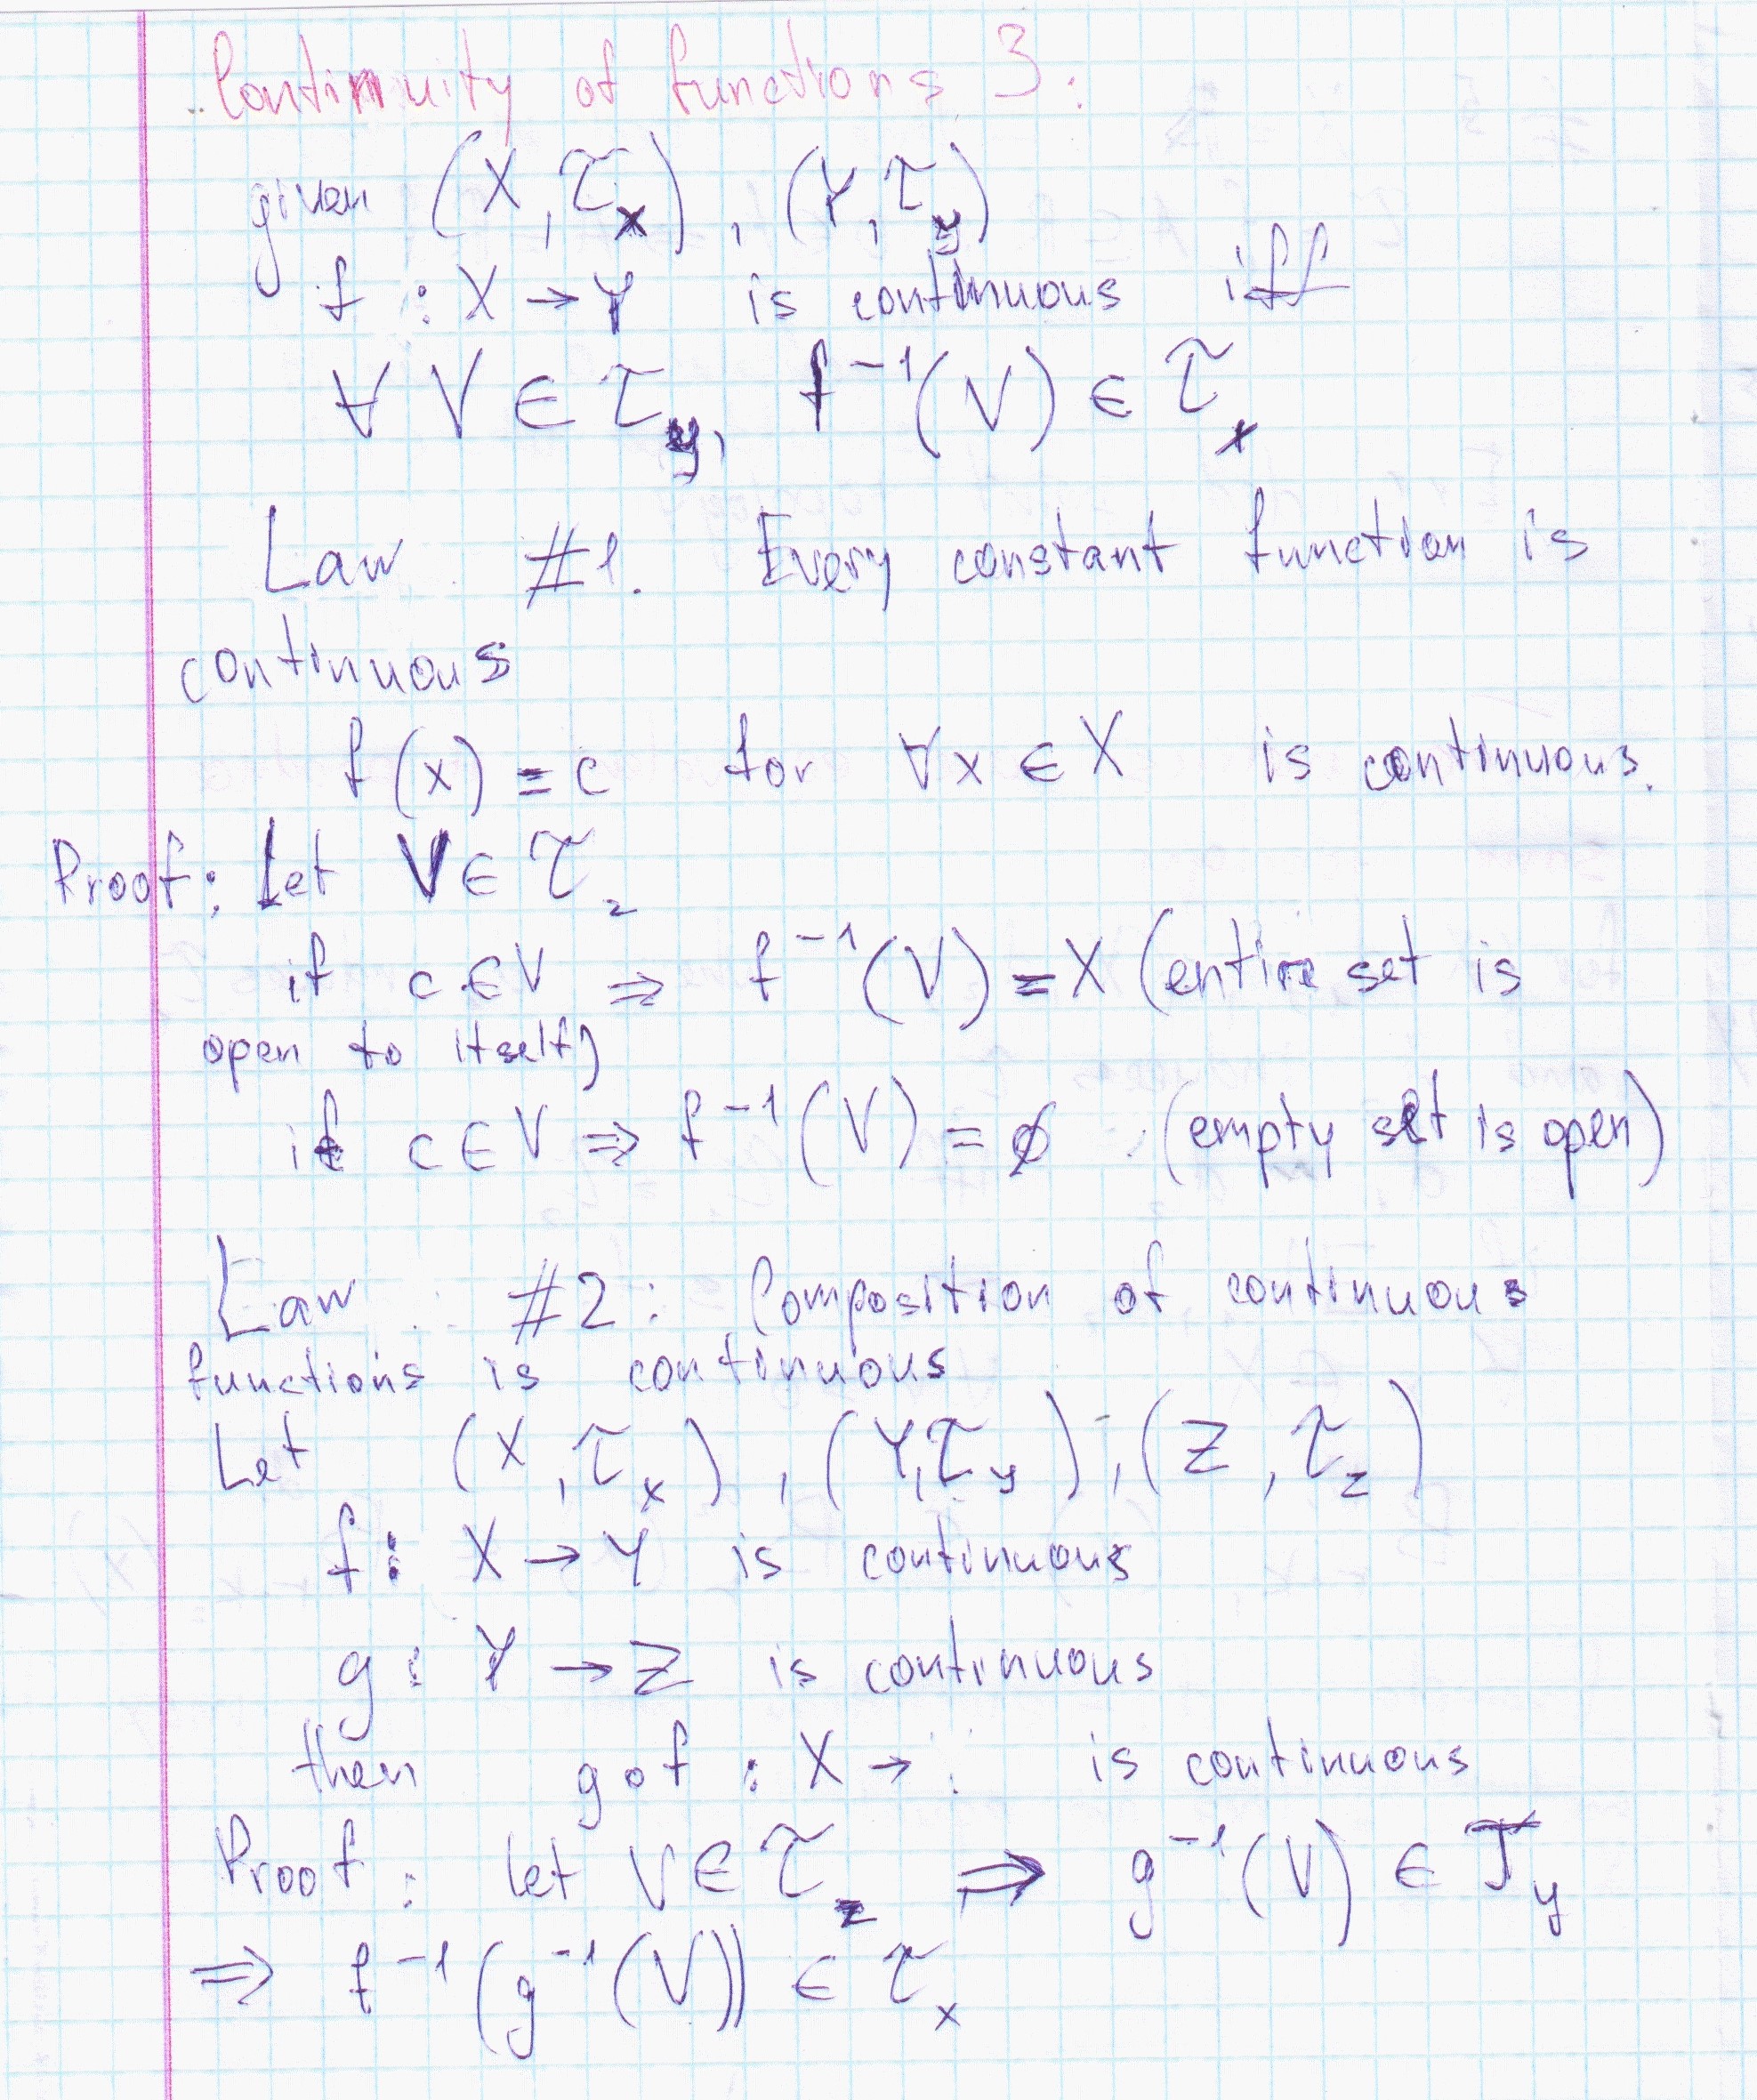 Continuity of functions 3:
given (X, τ_x), (Y, τ_y)
f : X → Y is continuous iff
∀ V ∈ τ_y, f⁻¹(V) ∈ τ_x
Law #1. Every constant function is
continuous
f(x) = c for ∀x ∈ X is continuous.
Proof: Let V ∈ τ_z
if c ∈ V ⇒ f⁻¹(V) = X (entire set is
open to itself)
if c ∈ V ⇒ f⁻¹(V) = ∅ (empty set is open)
Law #2: Composition of continuous
functions is continuous
Let (X, τ_x), (Y, τ_y), (Z, τ_z)
f : X → Y is continuous
g : Y → Z is continuous
then g∘f : X → is continuous
Proof: let V ∈ τ_z ⇒ g⁻¹(V) ∈ T_y
⇒ f⁻¹(g⁻¹(V)) ∈ τ_x